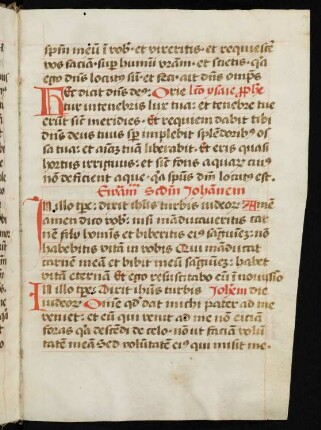 spm̄ meū ī vob᷒· et vixeritis· et requiesce
vos faciā· sup̄ humū vr̄am· et scietis· qa
ego dn̄s locut᷒ sū· et feci· ait dn̄s om̄ps
Hec dicit dn̄s de᷒· Orie lc̄o ysaie p̄phe
tur in tenebris lux tua· et tenebre tue
erūt sic̄ meridies· Et requiem dabit tibi
dn̄s deus tuus sp̄ implebit splēdorib᷒ os
sa tua· et aīaz tuā liberabit· Et eris quasi
hortus irriguus· et sic̄ fons aquar cui᷒
nō deficient aque· qa spūs dn̄i locut᷒ est.
Ewām Scdm̄ Johānem
In illo tpe· dixit ih̄s turbis iudeor Amē
amen dico vob᷒· nisi māducaueritis car
nē filo homīs et biberitis ei᷒ sāguinez· nō
habebitis vitā in vobis Qui māducat
carnē meā et bibit meū sāguinez· habet
vitā eternā Et ego resuscitabo eū ī nouissīo
In illo tpe· Dixit ih̄us turbis Johēm die
iudeor Om̄e qd̄ dat michi pater ad me
veniet· et eū qui venit ad me nō eiciā
foras qa descēdi de celo· nō ut faciā volū
tatē meā Sed volūtatē ei᷒ qui misit me·